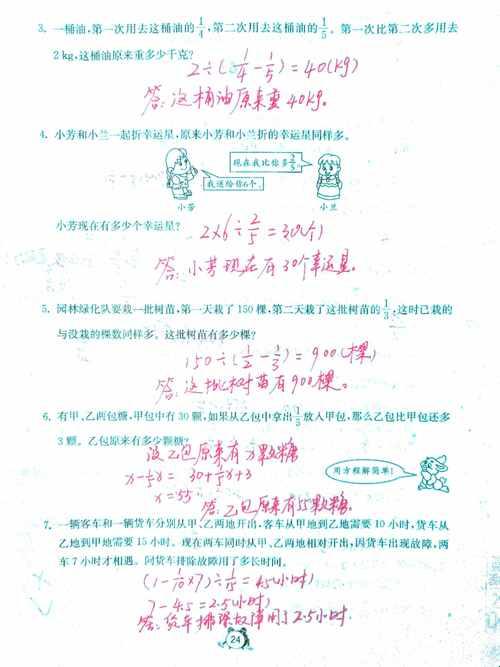 3. 一桶油,第一次用去这桶油的1/4,第二次用去这桶油的1/5。第一次比第二次多用去
2 kg,这桶油原来重多少千克?
2÷(1/4-1/5)=40(kg)
答:这桶油原来重40kg。
4. 小芳和小兰一起折幸运星,原来小芳和小兰折的幸运星同样多。
现在我比你多2/5。
我送给你6个。
小芳
小兰
小芳现在有多少个幸运星?
2×6÷2/5=30(个)
答:小芳现在有30个幸运星。
5. 园林绿化队要栽一批树苗,第一天栽了150棵,第二天栽了这批树苗的1/3,这时已栽的
与没栽的棵数同样多。这批树苗有多少棵?
150÷(1/2-1/3)=900(棵)
答:这批树苗有900棵。
6. 有甲、乙两包糖,甲包中有30颗,如果从乙包中拿出1/5放入甲包,那么乙包比甲包还多
3颗。乙包原来有多少颗糖?
设乙包原来有x颗糖
x-1/5x=30+1/5x+3
用方程解简单!
x=55
答:乙包原来有55颗糖。
7. 一辆客车和一辆货车分别从甲、乙两地开出,客车从甲地到乙地需要10小时,货车从
乙地到甲地需要15小时。现在两车同时从甲、乙两地相对开出,因货车出现故障,两
车7小时才相遇。问货车排除故障用了多长时间。
(1-1/10×7)÷1/15=4.5(小时)
7-4.5=2.5(小时)
答:货车排除故障用了2.5小时.
24